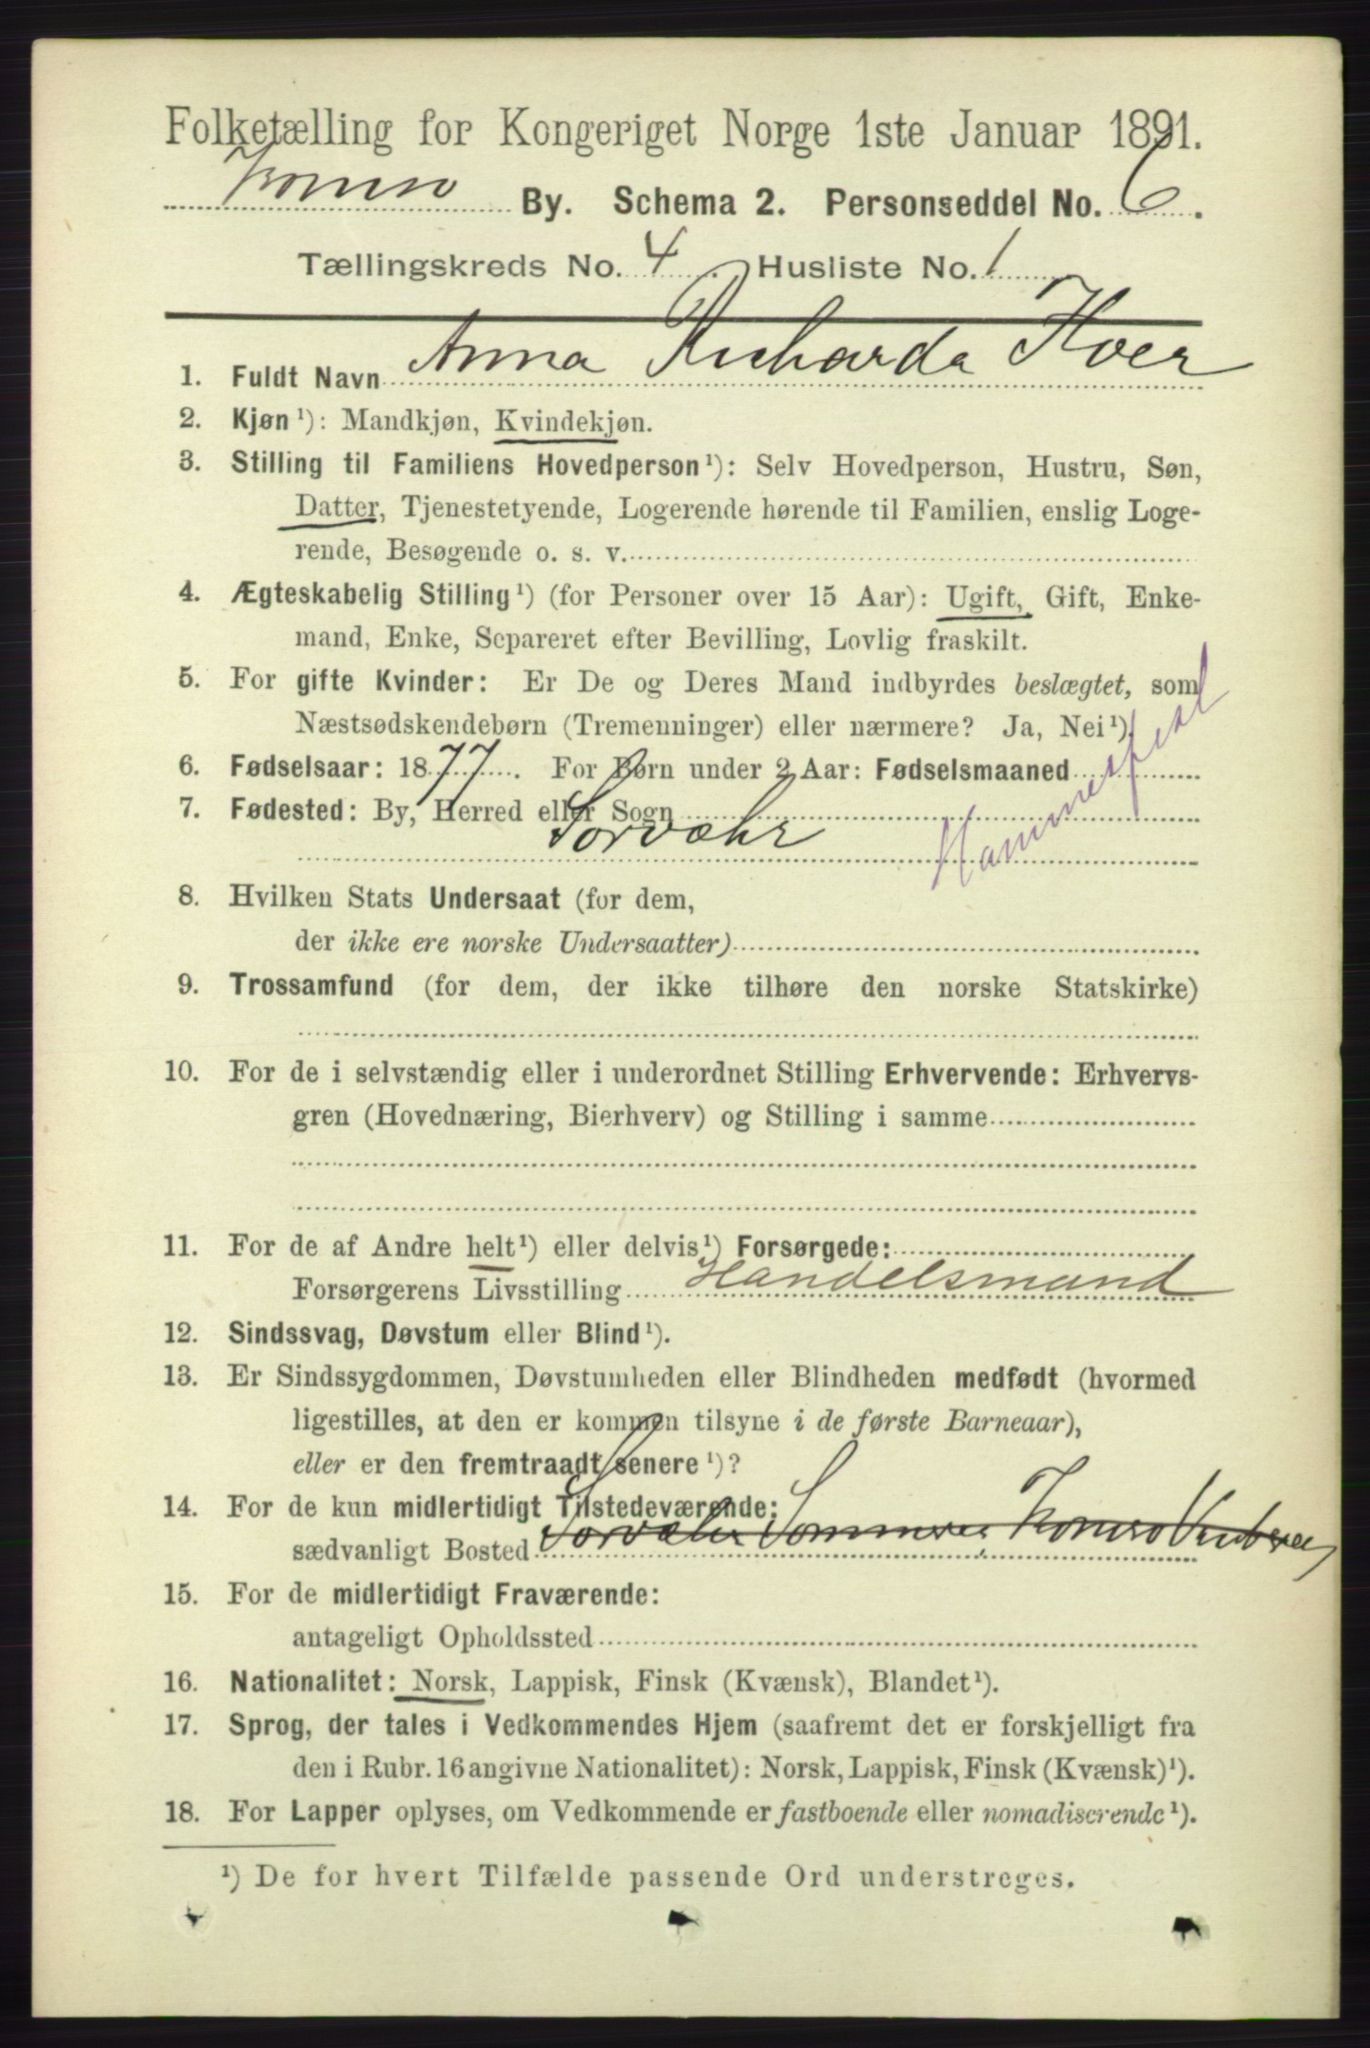 Folketælling for Kongeriget Norge 1ste Januar 1891.
Tromsø By. Schema 2. Personseddel No. 6.
Tællingskreds No. 4. Husliste No. 1
1. Fuldt Navn Anna Richarda Hver
2. Kjøn¹): Mandkjøn, Kvindekjøn.
3. Stilling til Familiens Hovedperson¹): Selv Hovedperson, Hustru, Søn,
Datter, Tjenestetyende, Logerende hørende til Familien, enslig Loge-
rende, Besøgende o. s. v.
4. Ægteskabelig Stilling¹) (for Personer over 15 Aar): Ugift, Gift, Enke-
mand, Enke, Separeret efter Bevilling, Lovlig fraskilt.
5. For gifte Kvinder: Er De og Deres Mand indbyrdes beslægtet, som
Næstsødskendebørn (Tremenninger) eller nærmere? Ja, Nei¹).
6. Fødselsaar: 1877. For Børn under 2 Aar: Fødselsmaaned
7. Fødested: By, Herred eller Sogn
Sørvær Hammerfest
8. Hvilken Stats Undersaat (for dem,
der ikke ere norske Undersaatter)
9. Trossamfund (for dem, der ikke tilhøre den norske Statskirke)
10. For de i selvstændig eller i underordnet Stilling Erhvervende: Erhvervs-
gren (Hovednæring, Bierhverv) og Stilling i samme
11. For de af Andre helt¹) eller delvis¹) Forsørgede:
Forsørgerens Livsstilling Handelsmand
12. Sindssvag, Døvstum eller Blind¹).
13. Er Sindssygdommen, Døvstumheden eller Blindheden medfødt (hvormed
ligestilles, at den er kommen tilsyne i de første Barneaar),
eller er den fremtraadt senere¹)?
14. For de kun midlertidigt Tilstedeværende:
sædvanligt Bosted Sørvær Sommeren, Tromsø
15. For de midlertidigt Fraværende:
antageligt Opholdssted
16. Nationalitet: Norsk, Lappisk, Finsk (Kvænsk), Blandet¹).
17. Sprog, der tales i Vedkommendes Hjem (saafremt det er forskjelligt fra
den i Rubr. 16 angivne Nationalitet): Norsk, Lappisk, Finsk (Kvænsk)¹).
18. For Lapper oplyses, om Vedkommende er fastboende eller nomadiserende¹).
¹) De for hvert Tilfælde passende Ord understreges.